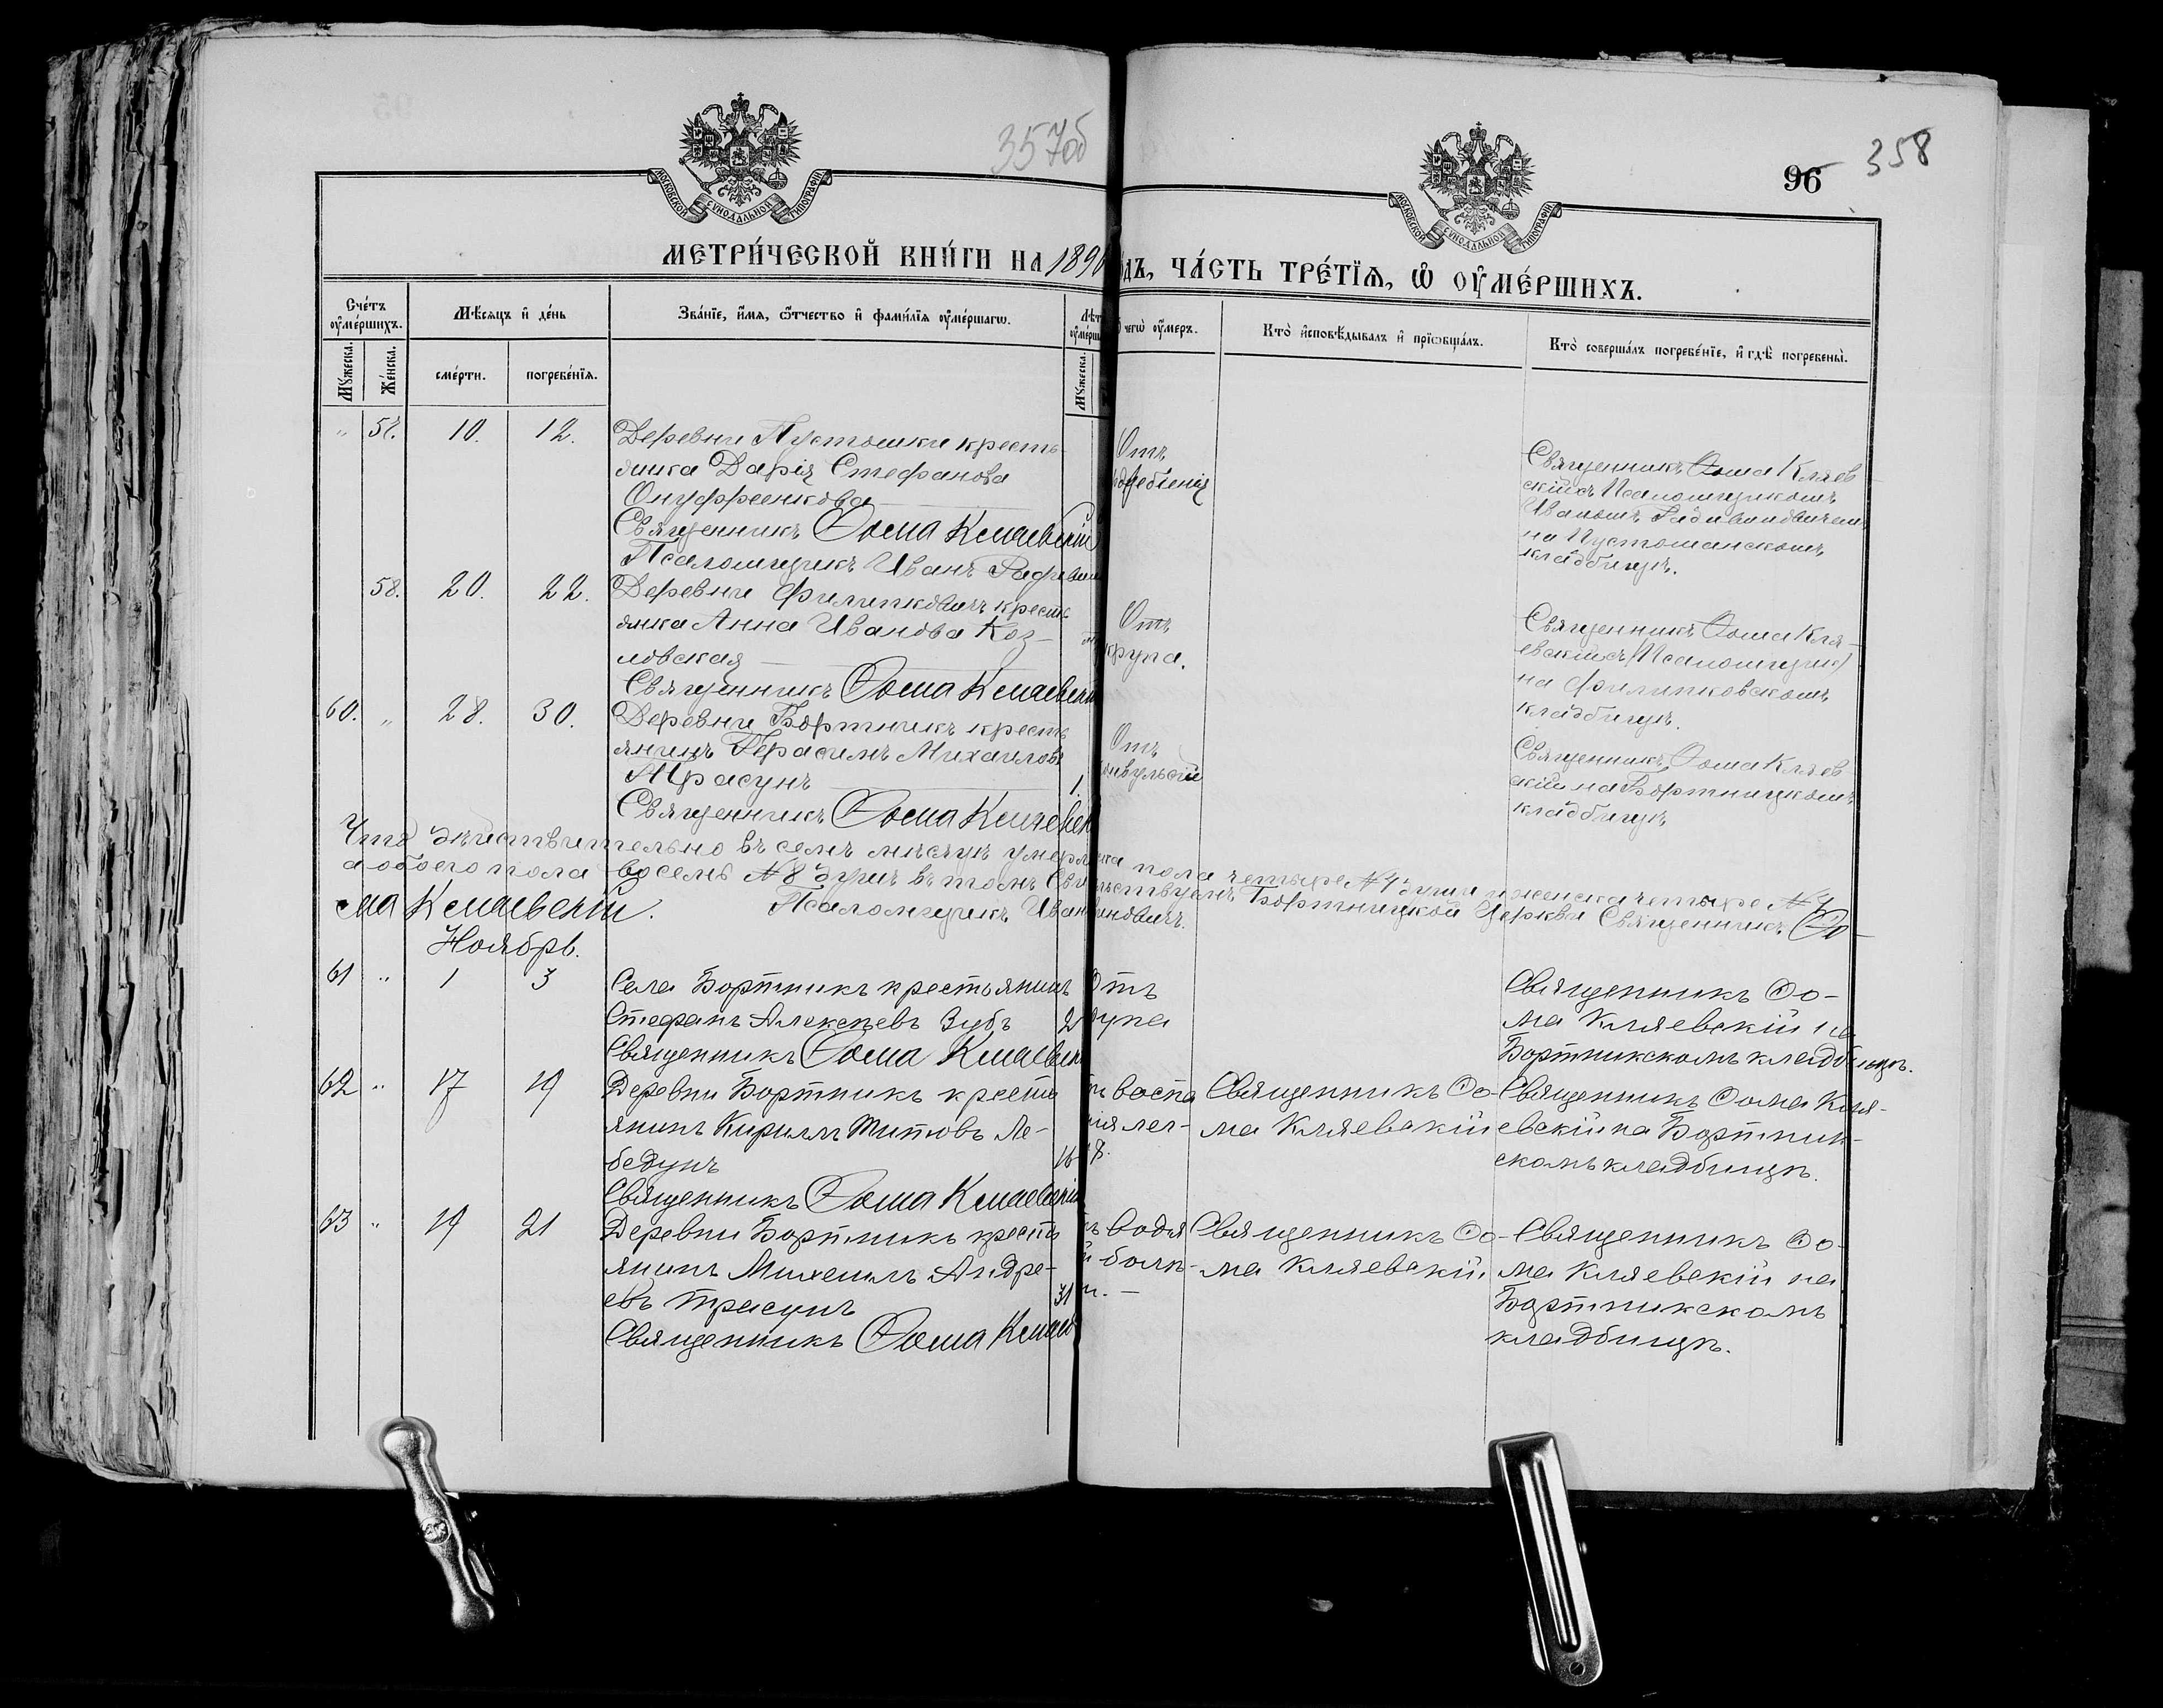 357об
358
96
МОСКОВСКОЙ СѴНОДАЛЬНОЙ ТИПОГРАФІИ
МОСКОВСКОЙ СѴНОДАЛЬНОЙ ТИПОГРАФІИ
МЕТРИ́ЧЕСКОЙ КНИ́ГИ НА 1890
ДЪ, ЧА́СТЬ ТРЕ́ТЇѦ, Ѡ҆ ОУ҆МЕ́РШИХЪ.
Сче́тъ оу҆ме́ршихъ.
Мꙋ́жеска.
Же́нска.
Мѣ́сѧцъ и҆ де́нь
сме́рти.
погребе́нїѧ.
Зва́нїе, и҆́мѧ, ѻ҆́тчество и҆ фами́лїѧ оу҆ме́ршагѡ.
Мꙋ́жеска.
чегѡ̀ оу҆́меръ.
Кто̀ и҆сповѣ́дывалъ и҆ прїѡбща́лъ.
Кто̀ соверша́лъ погребе́нїе, и҆ гдѣ̀ погребены̀.
" 10. 12. Деревни Пустошки кресть-
янка Дарія Стефанова
Онуфреенкова
Священникъ Ѳома Кляевскій
Псаломщикъ Иванъ
Отъ
Священникъ Ѳома Кляев
скій съ Псаломщикомъ
Иваномъ
на Пустошанскомъ
кладбищѣ.
58. 20. 22. Деревни Филипковичъ кресть-
янка Анна Иванова Коз-
ловская
Священникъ Ѳома Кляевскі
Отъ
крупа.
Священникъ Ѳома Кля-
евскій съ Псаломщик)
на Филипковскомъ
кладбищѣ.
60. " 28. 30. Деревни Бортникъ кресть
янинъ Герасимъ Михаиловъ
Трасунъ 1.
Священникъ Ѳома Кляевск
Отъ
онвульсій
Священникъ Ѳома Кляев
скій на Бортницкомъ
кладбищѣ
Что дѣйствительно въ семъ мѣсяцѣ умерло ска пола четыре №4 души и женска четыре №4
а обоего пола восемь №8 душъ въ томъ Сви тельствуемъ Бортницкой Церкви Священникъ Ѳо-
ма Кляевскій. Псаломщикъ Иван иновичъ.
Ноябрь.
61 " 1 3 Села Бортникъ крестьянинъ
Стефанъ Алексѣевъ Зубъ 2
Священникъ Ѳома Кляевск
Отъ
рупа
Священникъ Ѳо-
ма Кляевскій на
Бортникскомъ кладбищѣ.
62 " 17 19 Деревни Бортникъ кресть
янинъ Кириллъ Титовъ Ле-
бедунъ 16
Священникъ Ѳома Кляевскій
воспа
ія лег-
Священникъ Ѳо-
ма Кляевскій
Священникъ Ѳома Кля-
евскій на Бортник-
скомъ кладбищѣ.
63 " 19 21 Деревни Бортникъ кресть
янинъ Михаилъ Андре-
евъ Трасунъ 31
Священникъ Ѳома Кляев
ъ водя
й болѣ-
и. —
Священникъ Ѳо-
ма Кляевскій
Священникъ Ѳо-
ма Кляевскій на
Бортникскомъ
кладбищѣ.